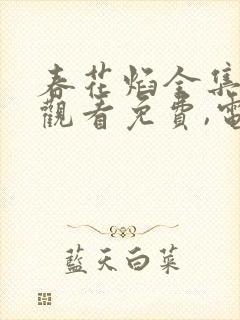 春花焰全集
觀看免費,電
藍天白菜